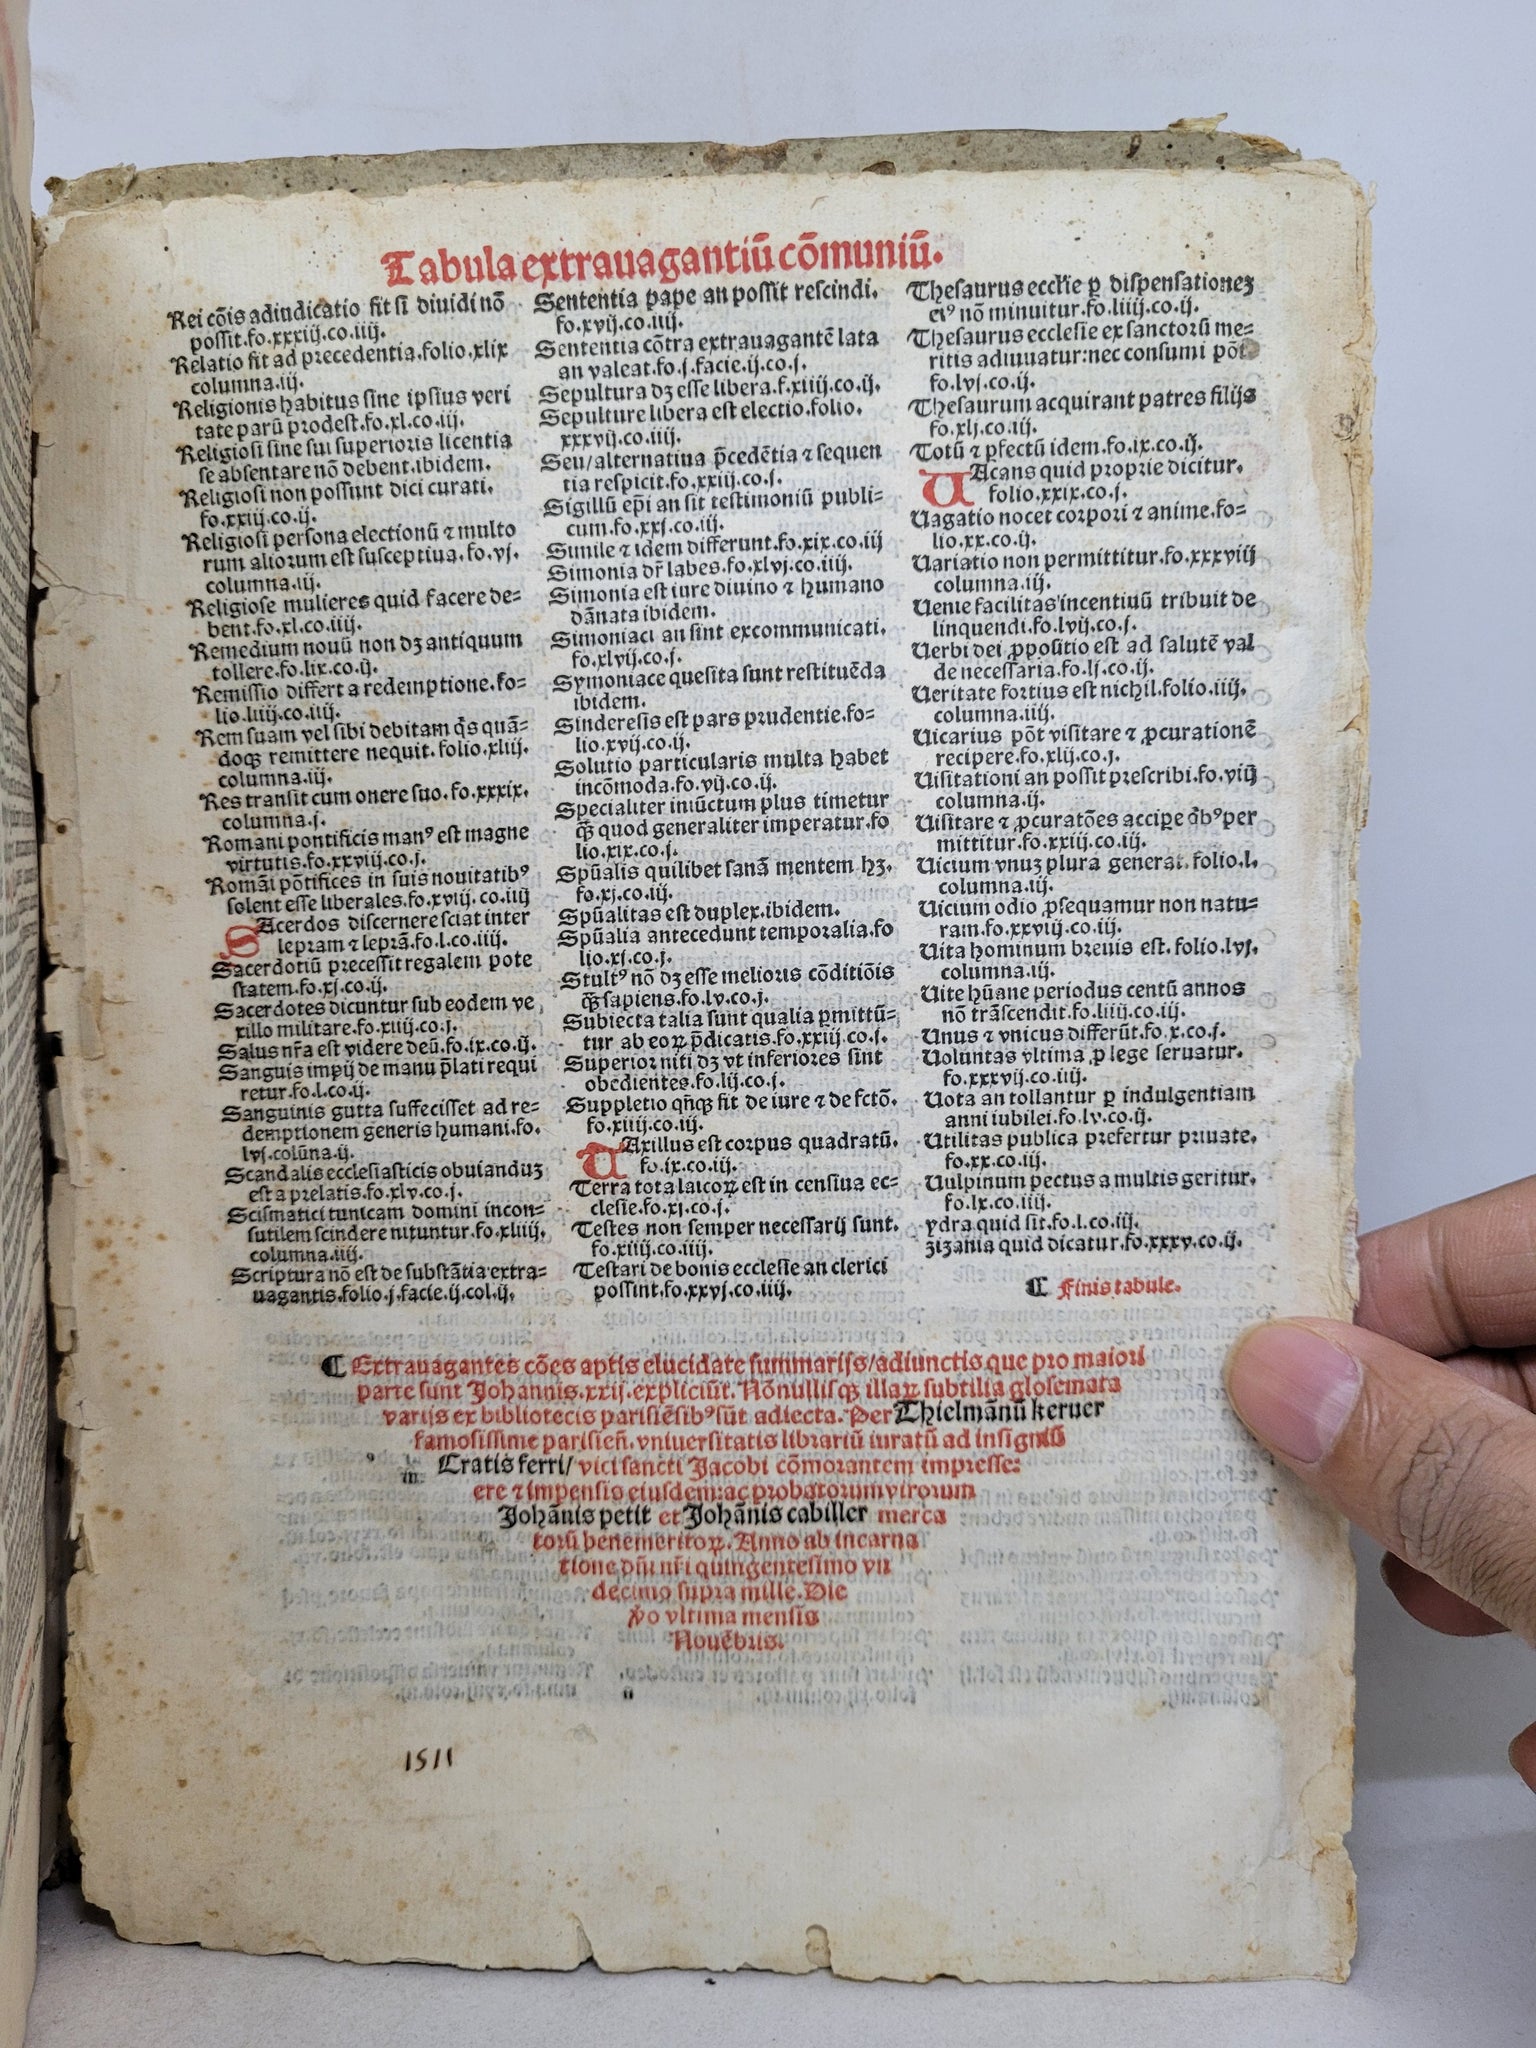 Tabula extrauagantiū cōmuniū.
Rei cōis adiudicatio fit si diuidi nō
possit.fo.xxxiij.co.iiij.
Relatio fit ad precedentia.folio.xlix
columna.iij.
Religionis habitus sine ipsius veri
tate parū prodest.fo.xl.co.iij.
Religiosi sine sui superioris licentia
se absentare nō debent.ibidem.
Religiosi non possunt dici curati.
fo.xxiij.co.ij.
Religiosi persona electionū ⁊ multo
rum aliorum est susceptiua.fo.vj.
columna.iij.
Religiose mulieres quid facere de=
bent.fo.xl.co.iiij.
Remedium nouū non dꝫ antiquum
tollere.fo.lix.co.ij.
Remissio differt a redemptione.fo=
lio.liiij.co.iiij.
Rem suam vel sibi debitam q̄s quā=
doqꝫ remittere nequit. folio.xliij.
columna.iij.
Res transit cum onere suo.fo.xxxix.
columna.j.
Romani pontificis manꝰ est magne
virtutis.fo.xxviij.co.j.
Romāi pōtifices in suis nouitatibꝰ
solent esse liberales.fo.xviij.co.iiij
SAcerdos discernere sciat inter
lepram ⁊ leprā.fo.l.co.iiij.
Sacerdotiū precessit regalem pote
statem.fo.xj.co.ij.
Sacerdotes dicuntur sub eodem ve
xillo militare.fo.xiiij.co.j.
Salus nr̄a est videre deū.fo.ix.co.ij.
Sanguis impij de manu p̄lati requi
retur.fo.l.co.ij.
Sanguinis gutta suffecisset ad re=
demptionem generis humani.fo.
lvj.colūna.ij.
Scandalis ecclesiasticis obuianduꝫ
est a prelatis.fo.xlv.co.j.
Scismatici tunicam domini incon=
sutilem scindere nituntur.fo.xliiij.
columna.iiij.
Scriptura nō est de substātia extra=
uagantis.folio.j.facie.ij.col.ij.
Sententia pape an possit rescindi.
fo.xvij.co.iiij.
Sententia cōtra extrauagantē lata
an valeat.fo.j.facie.ij.co.j.
Sepultura dꝫ esse libera.f.xiiij.co.ij.
Sepulture libera est electio.folio.
xxxvij.co.iiij.
Seu/alternatiua p̄cedētia ⁊ sequen
tia respicit.fo.xxiij.co.j.
Sigillū ep̄i an sit testimoniū publi=
cum.fo.xxj.co.iij.
Simile ⁊ idem differunt.fo.xix.co.iij
Simonia dr̄ labes.fo.xlvj.co.iiij.
Simonia est iure diuino ⁊ humano
dānata ibidem.
Simoniaci an sint excommunicati.
fo.xlvij.co.j.
Symoniace quesita sunt restituēda
ibidem.
Sinderesis est pars prudentie.fo=
lio.xvij.co.ij.
Solutio particularis multa habet
incōmoda.fo.vij.co.ij.
Specialiter iniūctum plus timetur
q̄ꝫ quod generaliter imperatur.fo
lio.xix.co.j.
Spūalis quilibet sanā mentem hꝫ.
fo.xj.co.iij.
Spūalitas est duplex.ibidem.
Spūalia antecedunt temporalia.fo
lio.xj.co.j.
Stultꝰ nō dꝫ esse melioris cōditiōis
q̄ꝫ sapiens.fo.lv.co.j.
Subiecta talia sunt qualia ꝑmittū=
tur ab eoꝝ p̄dicatis.fo.xxiij.co.j.
Superior niti dꝫ vt inferiores sint
obedientes.fo.lij.co.j.
Suppletio qn̄qꝫ fit de iure ⁊ de fctō.
fo.xiiij.co.iij.
TAxillus est corpus quadratū.
fo.ix.co.iij.
Terra tota laicoꝝ est in censiua ec=
clesie.fo.xj.co.j.
Testes non semper necessarij sunt.
fo.xiiij.co.iiij.
Testari de bonis ecclesie an clerici
possint.fo.xxvj.co.iiij.
Thesaurus eccl'ie ꝑ dispensationeꝫ
eiꝰ nō minuitur.fo.liiij.co.ij.
Thesaurus ecclesie ex sanctorū me=
ritis adiuuatur:nec consumi pōt
fo.lvj.co.ij.
Thesaurum acquirant patres filijs
fo.xlj.co.iij.
Totū ⁊ ꝑfectū idem.fo.ix.co.ij.
UAcans quid proprie dicitur.
folio.xxix.co.j.
Uagatio nocet corpori ⁊ anime.fo=
lio.xx.co.ij.
Uariatio non permittitur.fo.xxxviij
columna.iij.
Uenie facilitas incentiuū tribuit de
linquendi.fo.lvij.co.j.
Uerbi dei ꝓpositio est ad salutē val
de necessaria.fo.lj.co.ij.
Ueritate fortius est nichil.folio.iiij.
columna.iiij.
Uicarius pōt visitare ⁊ ꝓcurationē
recipere.fo.xlij.co.j.
Uisitationi an possit prescribi.fo.viij
columna.ij.
Uisitare ⁊ ꝓcuratōes accipe q̄bꝰ per
mittitur.fo.xxiij.co.iij.
Uicium vnuꝫ plura generat.folio.l.
columna.iij.
Uicium odio ꝓsequamur non natu=
ram.fo.xxviij.co.iij.
Uita hominum breuis est. folio.lvj.
columna.iij.
Uite hūane periodus centū annos
nō trāscendit.fo.liiij.co.iij.
Unus ⁊ vnicus differūt.fo.x.co.j.
Uoluntas vltima ꝓ lege seruatur.
fo.xxxvij.co.iiij.
Uota an tollantur ꝑ indulgentiam
anni iubilei.fo.lv.co.ij.
Utilitas publica prefertur priuate.
fo.xx.co.iij.
Uulpinum pectus a multis geritur.
fo.lx.co.iiij.
ydra quid sit.fo.l.co.iij.
ꝫiꝫania quid dicatur.fo.xxxv.co.ij.
¶ Finis tabule.
¶ Extrauagantes cōes aptis elucidate summarijs/adiunctis que pro maiori
parte sunt Johannis.xxij.expliciūt. Nōnullisqꝫ illaꝝ subtilia glosemata
varijs ex bibliotecis parisiēsibꝰ sūt adiecta. Per Thielmānū keruer
famosissime parisieñ. vniuersitatis librariū iuratū ad insigniū
Cratis ferri/ vici sancti Jacobi cōmorantem impresse:
ere ⁊ impensis eiusdem:ac probatorum virorum
Johānis petit et Johānis cabiller merca
torū benemeritoꝝ. Anno ab incarna
tione dn̄i nr̄i quingentesimo vn
decimo supra mille. Die
v̓o vltima mensis
Nouēbris.
1511